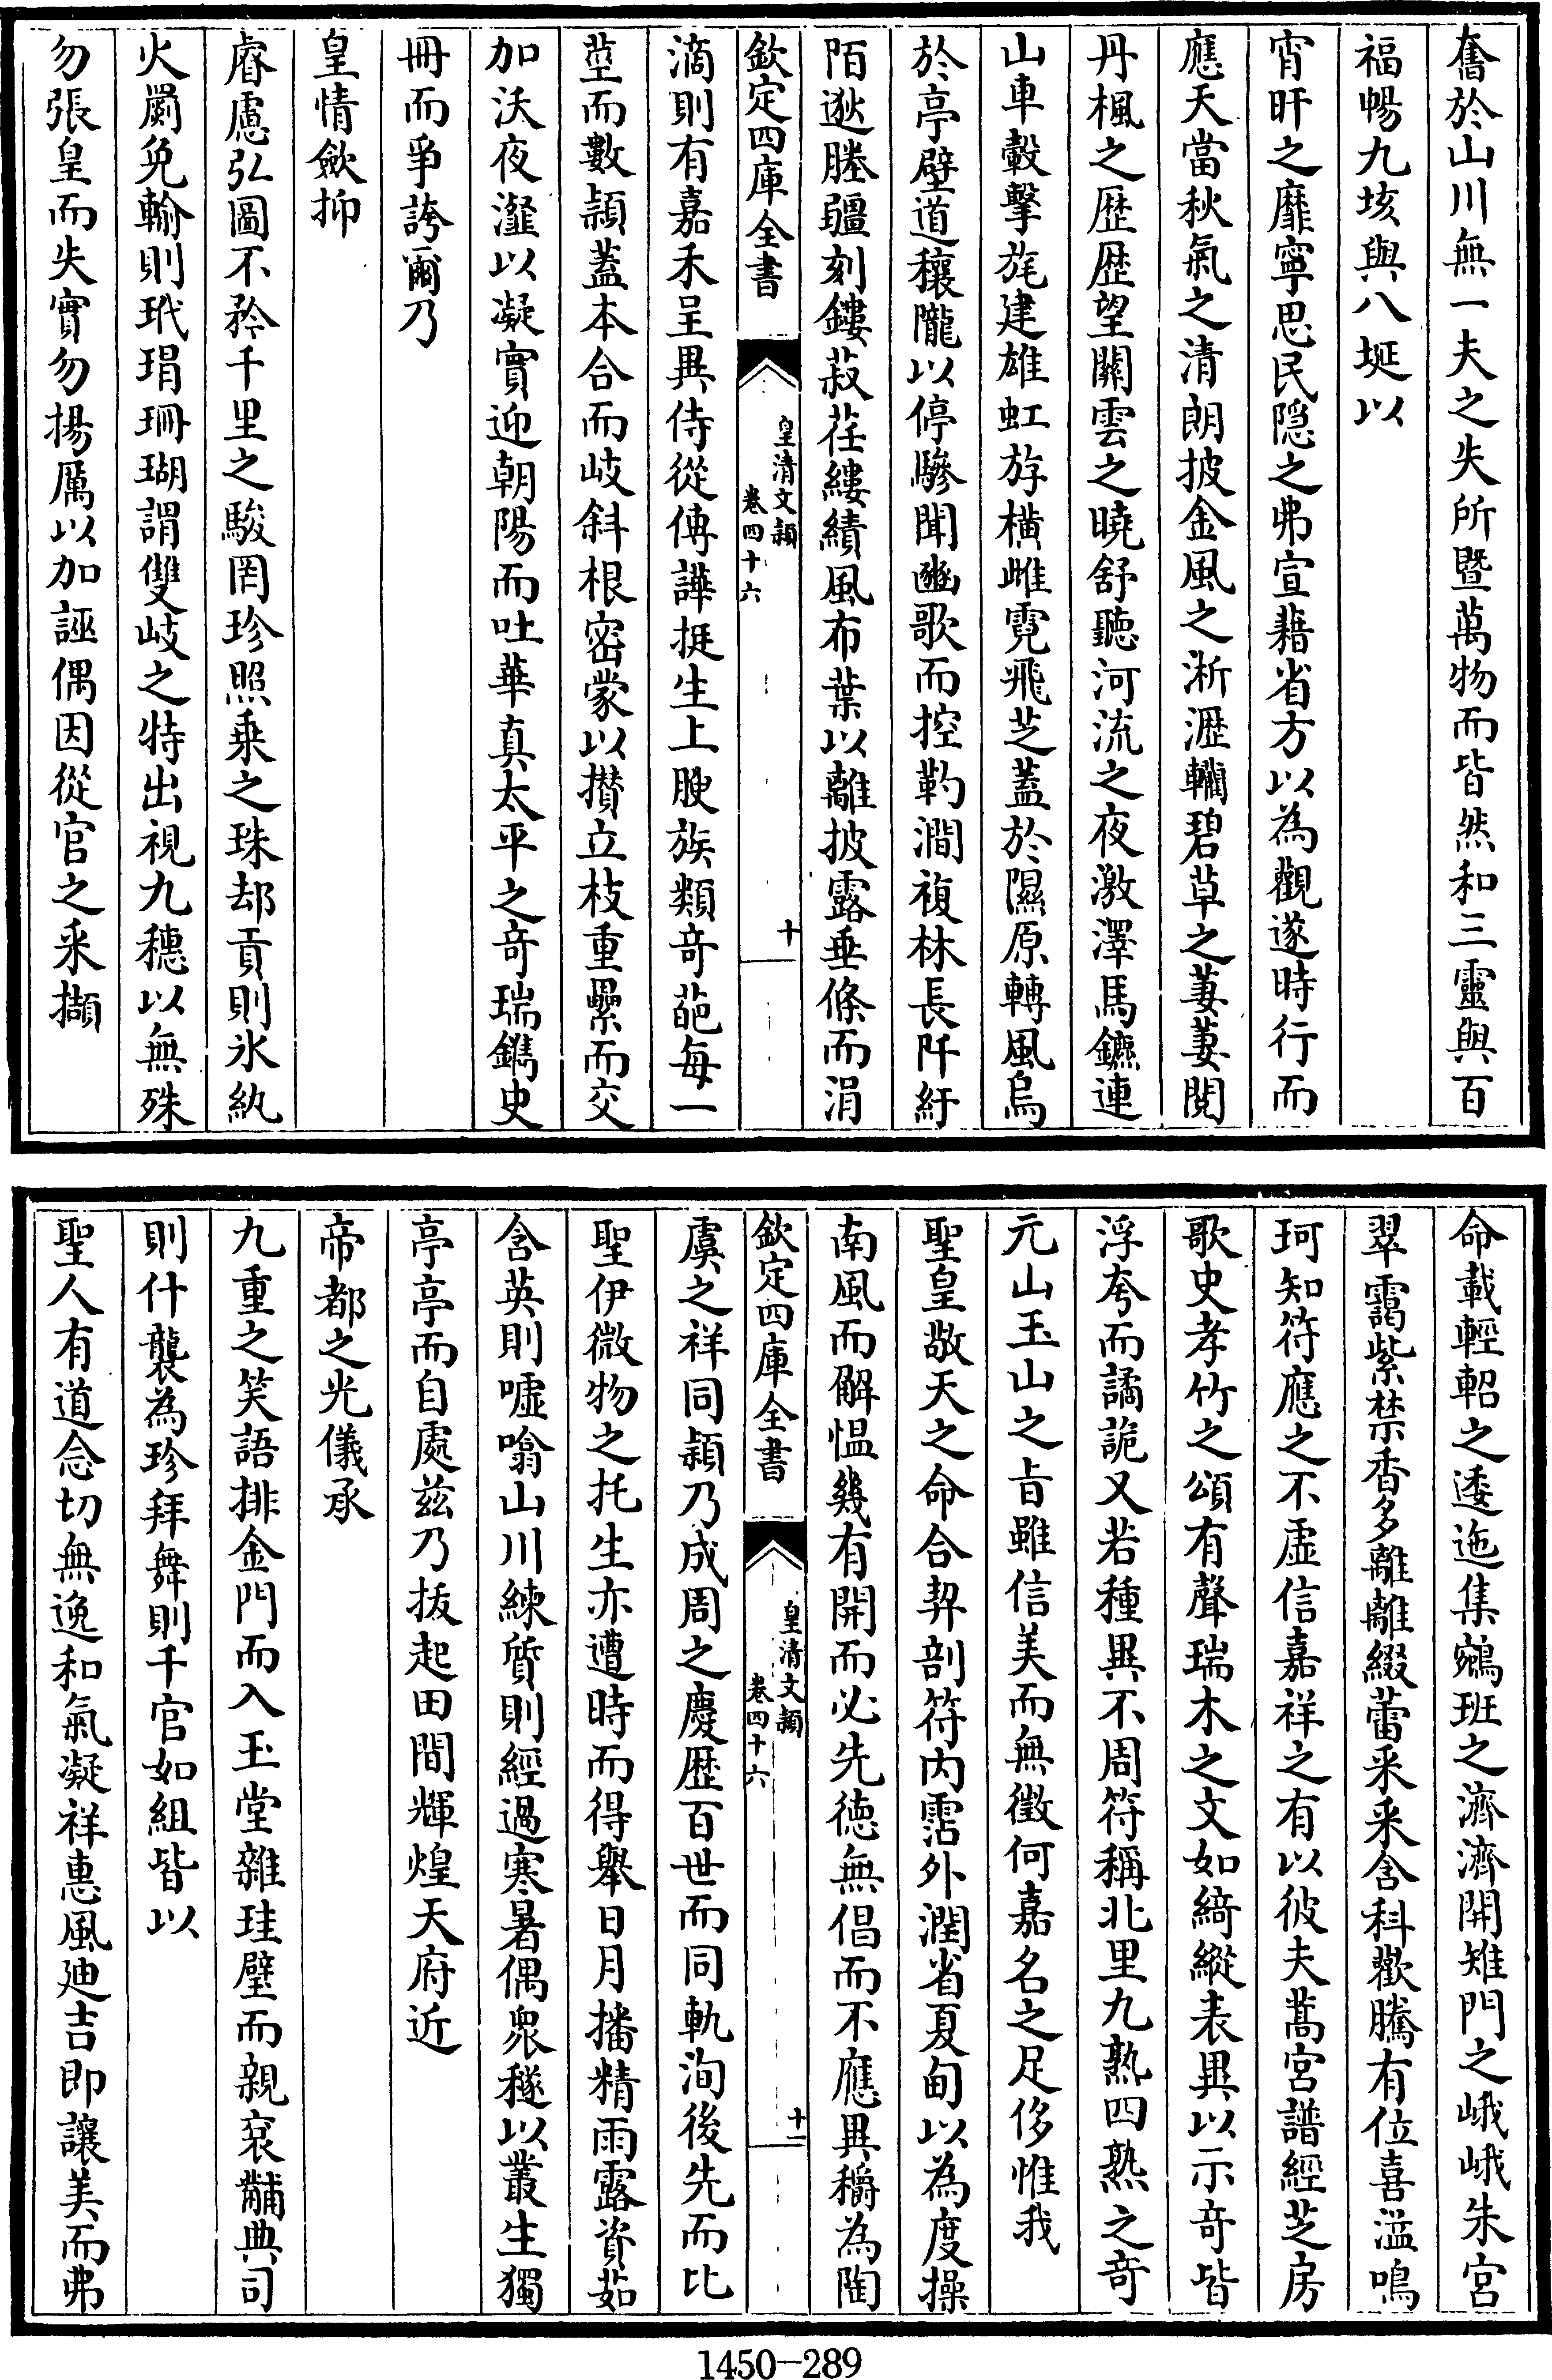 奮於山川無一夫之失所暨萬物而皆然和三靈與百
福暢九垓與八埏以
宵旰之靡寧思民隐之弗宣藉省方以為觀遂時行而
應天當秋氣之清朗披金風之淅瀝轥碧草之萋萋閱
丹楓之歴歴望關雲之曉舒聽河流之夜激澤馬鑣連
山車轂擊旄建雄虹斿横雌霓飛芝蓋於隰原轉風烏
於亭壁道穰隴以停驂聞豳歌而控靮澗複林長阡紆
陌逖塍疆刻鏤菽荏縷績風布葉以離披露垂條而涓
欽定四庫全書
皇清文頴
卷四十六
十
滴則有嘉禾呈異侍從傳譁挺生上腴族類奇葩每一
莖而數頴蓋本合而岐斜根密蒙以攅立枝重纍而交
加沃夜瀣以凝實迎朝陽而吐華真太平之竒瑞鐫史
冊而爭誇爾乃
皇情歛抑
睿慮弘圖不矜千里之駿罔珍照乗之珠却貢則氷紈
火罽免輸則玳瑁珊瑚謂雙岐之特出視九穗以無殊
勿張皇而失實勿揚厲以加誣偶因從官之采擷
命載輕軺之逶迤集鵷班之濟濟開雉門之峨峨朱宫
翠靄紫禁香多離離綴蕾采采含科歡騰有位喜溢鳴
珂知符應之不虚信嘉祥之有以彼夫蒿宫譜經芝房
歌史孝竹之頌有聲瑞木之文如綺縱表異以示竒皆
浮夸而譎詭又若種異不周符稱北里九熟四熟之竒
元山玉山之㫖雖信美而無徵何嘉名之足侈惟我
聖皇敬天之命合契剖符内霑外潤省夏甸以為度操
南風而解愠幾有開而必先徳無倡而不應異穭為陶
欽定四庫全書
皇清文頴
卷四十六
十一
虞之祥同頴乃成周之慶歴百世而同軌洵後先而比
聖伊微物之托生亦遭時而得舉日月播精雨露資茹
含英則嘘噏山川練質則經過寒暑偶衆穟以叢生獨
亭亭而自處兹乃拔起田間輝煌天府近
帝都之光儀承
九重之笑語排金門而入玉堂雜珪璧而親衮黼典司
則什襲為珍拜舞則千官如組皆以
聖人有道念切無逸和氣凝祥惠風廸吉即讓美而弗
1450-289